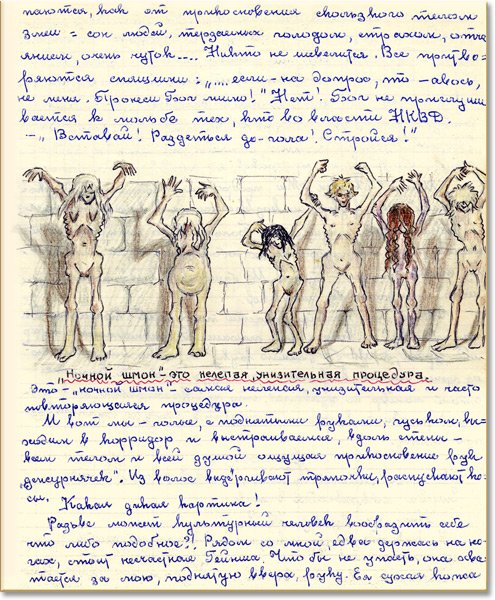 паются, как от прикосновения скользкого телом
змеи = сон людей, терзаемых голодом, страхом, отча
янием, очень чуток.... Никто не шевелится. Все притво-
ряются спящими: „....если - на допрос, то - авось,
не меня. Пронеси Бог мимо!" Нет! Бог не прислуши
вается к мольбе тех, кто во власти НКВД.
—„ Вставай! Раздеться до-гола! Стройся!"
„Ночной шмон"- это нелепая, унизительная процедура.
Это - „ночной шмон" - самая нелепая, унизительная и часто
повторяющаяся процедура.
И вот мы - голые, с поднятыми руками, гуськом, вы-
ходим в корридор и выстраиваемся, вдоль стены -
всем телом и всей душой ощущая прикосновение рук
„дежурнячек". Из волос выдёргивают тряпочки, распускают ко-
сы. Какая дикая картина!
Разве может культурный человек вообразить себе
что либо подобное?! Рядом со мной, едва держась на но-
гах, стоит несчастная Гейша. Что бы не упасть, она хва-
тается за мою, поднятую вверх, руку. Ея сухая кожа